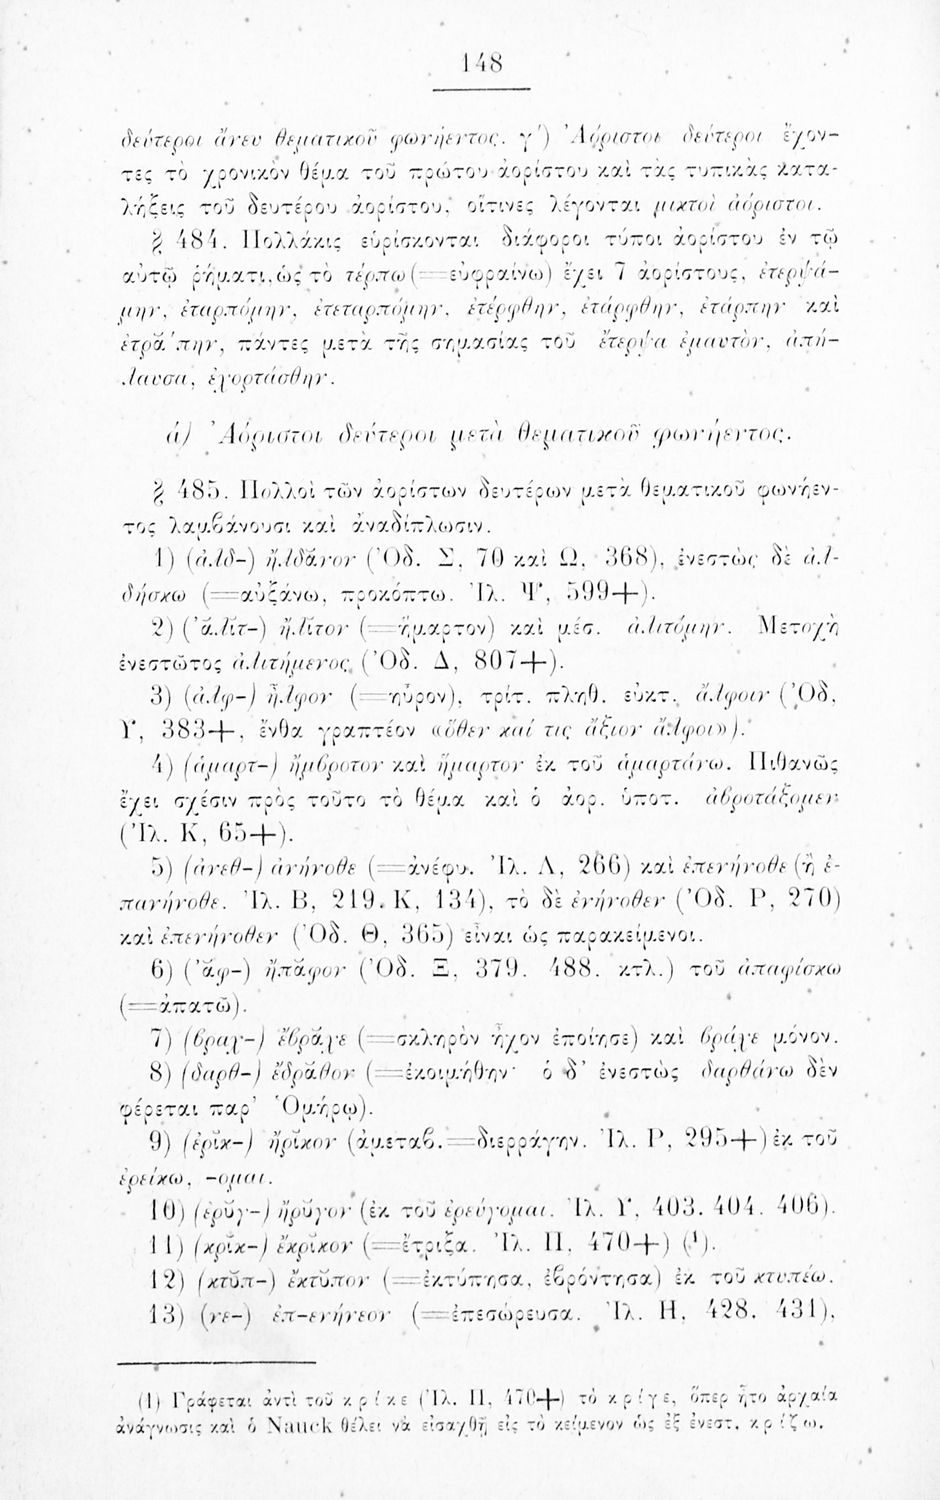 148
δεύτεροι ἄνευ θεματικοῦ φωνήεντος. γ΄) Ἀόριστοι δεύτεροι ἔχον-
τες τὸ χρονικὸν θέμα τοῦ πρώτου ἀορίστου καὶ τὰς τυπικὰς κατα-
λήξεις τοῦ δευτέρου ἀορίστου, οἵτινες λέγονται μικτοὶ ἀόριστοι.
§ 484. Πολλάκις εὑρίσκονται διάφοροι τύποι ἀορίστου ἐν τῷ
αὐτῷ ῥήματι, ὡς τὸ τέρπω (=εὐφραίνω) ἔχει 7 ἀορίστους, ἐτερψά-
μην, ἐταρπόμην, ἐτεταρπόμην, ἐτέρφθην, ἐτάρφθην, ἐτάρπην καὶ
ἐτρᾰ́πην, πάντες μετὰ τῆς σημασίας τοῦ ἔτερψα ἐμαυτὸν, ἀπή-
λαυσα, ἐχορτάσθην.
ά) Ἀόριστοι δεύτεροι μετὰ θεματικοῦ φωνήεντος.
§ 485. Πολλοὶ τῶν ἀορίστων δευτέρων μετὰ θεματικοῦ φωνήεν-
τος λαμβάνουσι καὶ ἀναδίπλωσιν.
1) (ἀλδ-) ἤλδᾰνον (Ὀδ. Σ, 70 καὶ Ω, 368), ἐνεστὼς δὲ ἀλ-
δήσκω (=αὐξάνω, προκόπτω. Ἰλ. Ψ, 599+).
2) (ἀλῐτ-) ἤλῐτον (=ἥμαρτον) καὶ μέσ. ἀλιτόμην. Μετοχὴ
ἐνεστῶτος ἀλιτήμενος (Ὀδ. Δ, 807+).
3) (ἀλφ-) ἦλφον (=ηὗρον), τρίτ. πληθ. εὐκτ. ἄλφοιν (Ὀδ.
Υ, 383+, ἔνθα γραπτέον «ὅθεν καί τις ἄξιον ἄλφοι»).
4) (ἁμαρτ-) ἤμβροτον καὶ ἥμαρτον ἐκ τοῦ ἁμαρτάνω. Πιθανῶς
ἔχει σχέσιν πρὸς τοῦτο τὸ θέμα καὶ ὁ ἀορ. ὑποτ. ἀβροτάξομεν
(Ἰλ. Κ, 65+).
5) (ἀνεθ-) ἀνήνοθε (=ἀνέφυ. Ἰλ. Λ, 266) καὶ ἐπενήνοθε (ἢ ἐ-
πανήνοθε. Ἰλ. Β, 219. Κ, 134), τὸ δὲ ἐνήνοθεν (Ὀδ. Ρ, 270)
καὶ ἐπενήνοθεν (Ὀδ. Θ, 365) εἶναι ὡς παρακείμενοι.
6) (ἀφ-) ἤπᾰφον (Ὀδ. Ξ, 379. 488. κτλ.) τοῦ ἀπαφίσκω
(=ἀπατῶ).
7) (βραχ-) ἔβρᾰχε (=σκληρὸν ἦχον ἐποίησε) καὶ βράχε μόνον.
8) (δαρθ-) ἔδρᾰθον (=ἐκοιμήθην· ὁ δ᾽ ἐνεστὼς δαρθάνω δὲν
φέρεται παρ᾽ Ὁμήρῳ).
9) (ἐρῐκ-) ἤρῐκον (ἀμεταβ.=διερράγην. Ἰλ. Ρ, 295+) ἐκ τοῦ
ἐρείκω, -ομαι.
10) (ἐρῠγ-) ἤρῠγον (ἐκ τοῦ ἐρεύγομαι. Ἰλ. Υ, 403. 404. 406).
11) (κρῐκ-) ἔκρῐκον (=ἔτριξα. Ἰλ. Π, 470+) (¹).
12) (κτῠπ-) ἔκτῠπον (=ἐκτύπησα, ἐβρόντησα) ἐκ τοῦ κτυπέω.
13) (νε-) ἐπ-ενήνεον (=ἐπεσώρευσα. Ἰλ. Η, 428. 431),
(1) Γράφεται ἀντὶ τοῦ κρίκε (Ἰλ. Π, 470+) τὸ κρίγε, ὅπερ ἦτο ἀρχαία
ἀνάγνωσις καὶ ὁ Nauck θέλει νὰ εἰσαχθῇ εἰς τὸ κείμενον ὡς ἐξ ἐνεστ. κρίζω.